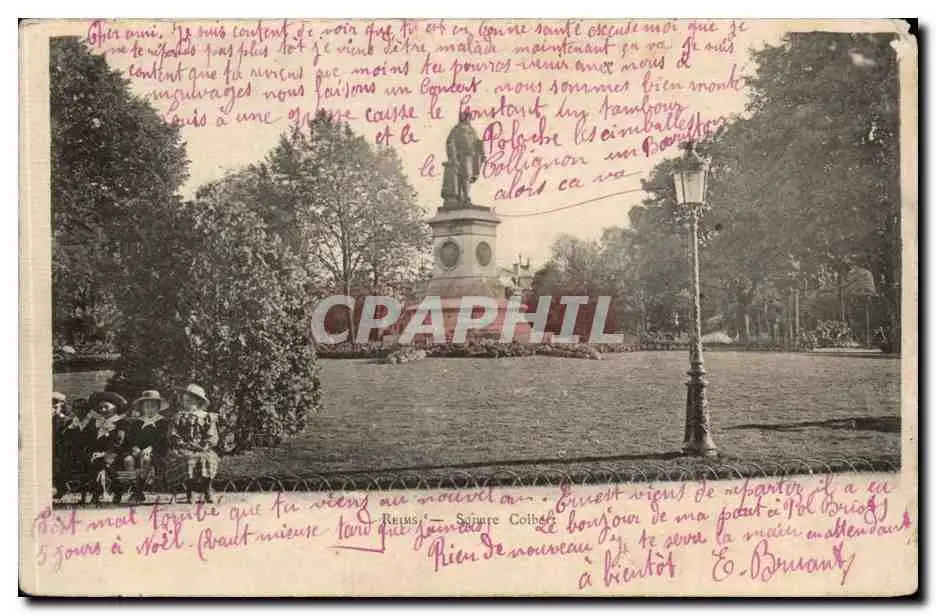 Cher ami. Je suis content de voir que tu est en bonne santé escuse moi que je
ne te répond pas plus tôt je viens d'être malade maintenant ça va Je suis
content que tu reviens que moins tu pourras venir aux nous de
nouvages nous faisons un Concert nous sommes bien monté
à une grosse caisse le Constant, tambour
et le Poloche les cimballes
le Collignon un
alors ça va
CPARAMAPHIL
REIMS. — Square Colbert
mal tombé que tu viens au nouvel an. Ernest viens de repartir il a eu
5 jours à Noël. (Vaut mieuse tard que jamais) Le bonjour de ma part à Pol
Rien de nouveau je te serre la main en attendant
à bientôt E. Bruant